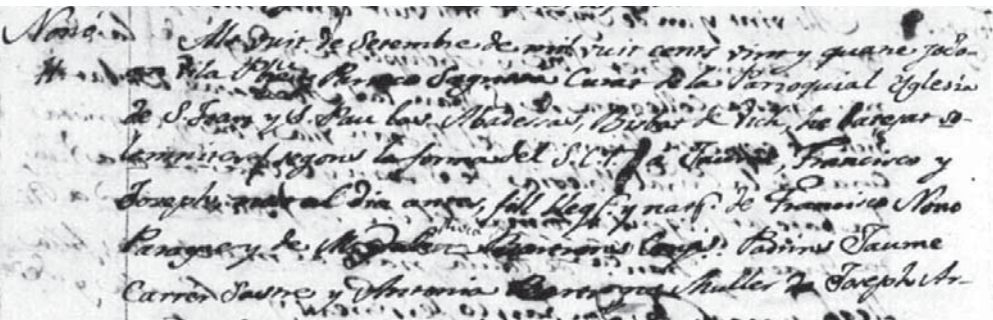 Nonó. Als vuit de Setembre de mil vuit cents vint y quatre Jo
Vila Pbre. y Parroco Sagrista Curat de la Parroquial Yglesia
de S. Joan y S. Pau las Abadessas, Bisbat de Vich, he batejat so-
lemnement segons la forma del S. C. T. á Jaume, Francisco y
Joseph, nat al dia antes, fill llegm. y natl. de Francisco Nono
Parayre y de Maria conjs. Padrins Jaume
Carrer Sastre y Antonia Muller de Joseph Ar-